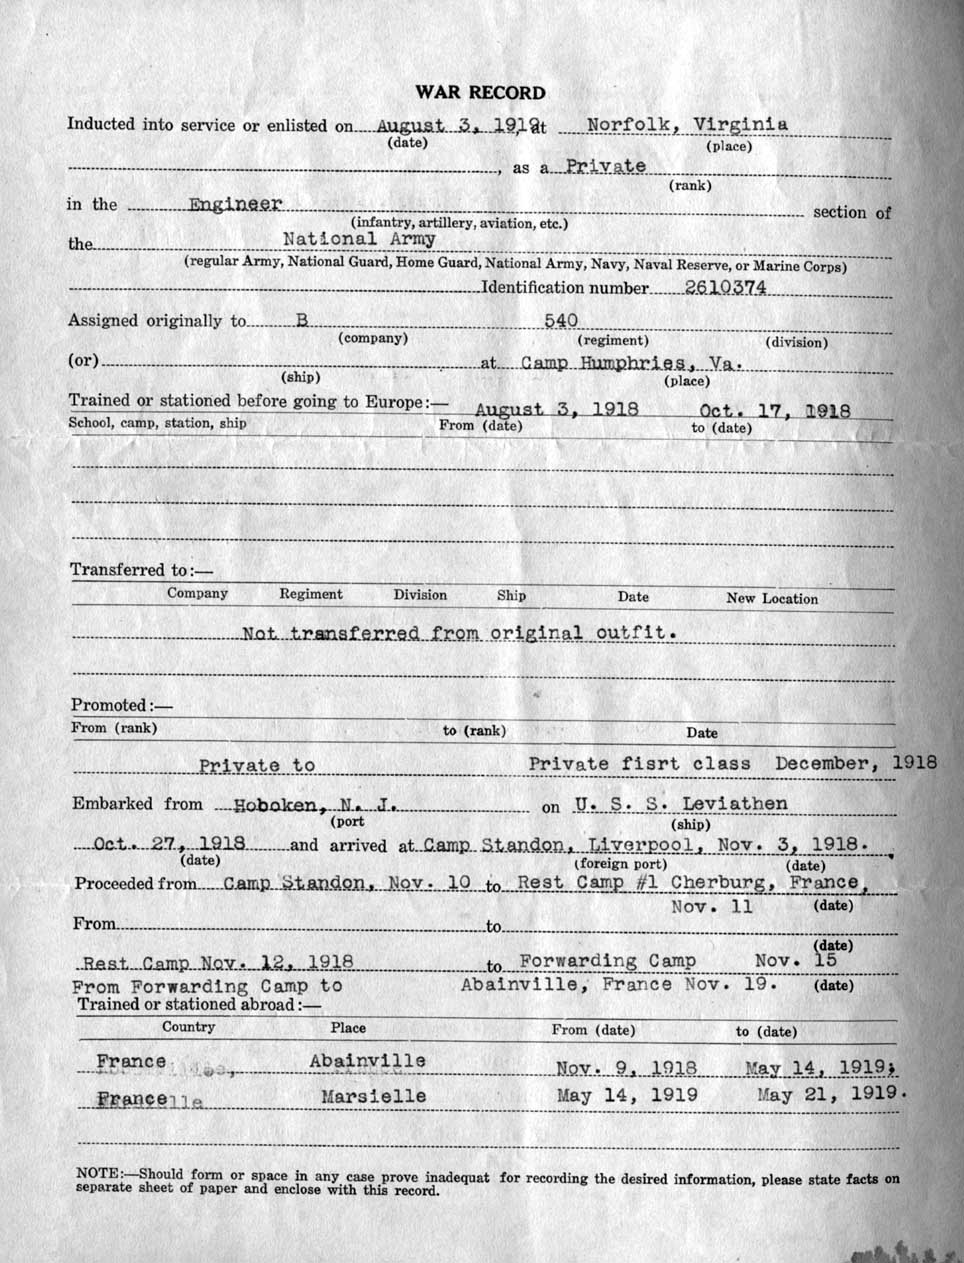 WAR RECORD
Inducted into service or enlisted on August 3, 1919, at Norfolk, Virginia
(date) (place)
, as a Private
(rank)
in the Engineer section of
(infantry, artillery, aviation, etc.)
the National Army
(regular Army, National Guard, Home Guard, National Army, Navy, Naval Reserve, or Marine Corps)
Identification number 2610374
Assigned originally to B 540
(company) (regiment) (division)
(or) at Camp Humphries, Va.
(ship) (place)
Trained or stationed before going to Europe:— August 3, 1918 Oct. 17, 1918
School, camp, station, ship From (date) to (date)
Transferred to:—
Company Regiment Division Ship Date New Location
Not transferred from original outfit.
Promoted:—
From (rank) to (rank) Date
Private to Private fisrt class December, 1918
Embarked from Hoboken, N. J. on U. S. S. Leviathen
(port (ship)
Oct. 27, 1918 and arrived at Camp Standon, Liverpool, Nov. 3, 1918.
(date) (foreign port) (date)
Proceeded from Camp Standon, Nov. 10 to Rest Camp #1 Cherburg, France,
Nov. 11 (date)
From to
(date)
Rest Camp Nov. 12, 1918 to Forwarding Camp Nov. 15
From Forwarding Camp to Abainville, France Nov. 19. (date)
Trained or stationed abroad:—
Country Place From (date) to (date)
France Abainville Nov. 9, 1918 May 14, 1919;
France Marsielle May 14, 1919 May 21, 1919.
NOTE:—Should form or space in any case prove inadequat for recording the desired information, please state facts on
separate sheet of paper and enclose with this record.